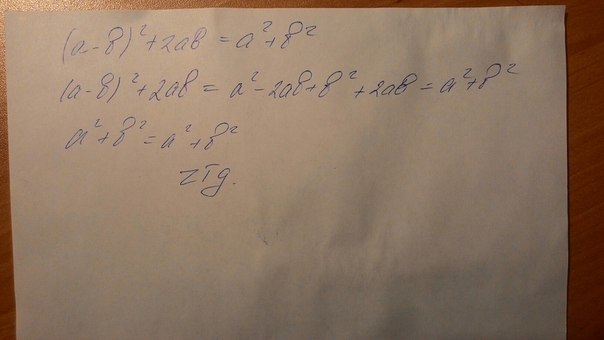 (a-b)²+2ab = a²+b²
(a-b)²+2ab = a²-2ab+b²+2ab = a²+b²
a²+b² = a²+b²